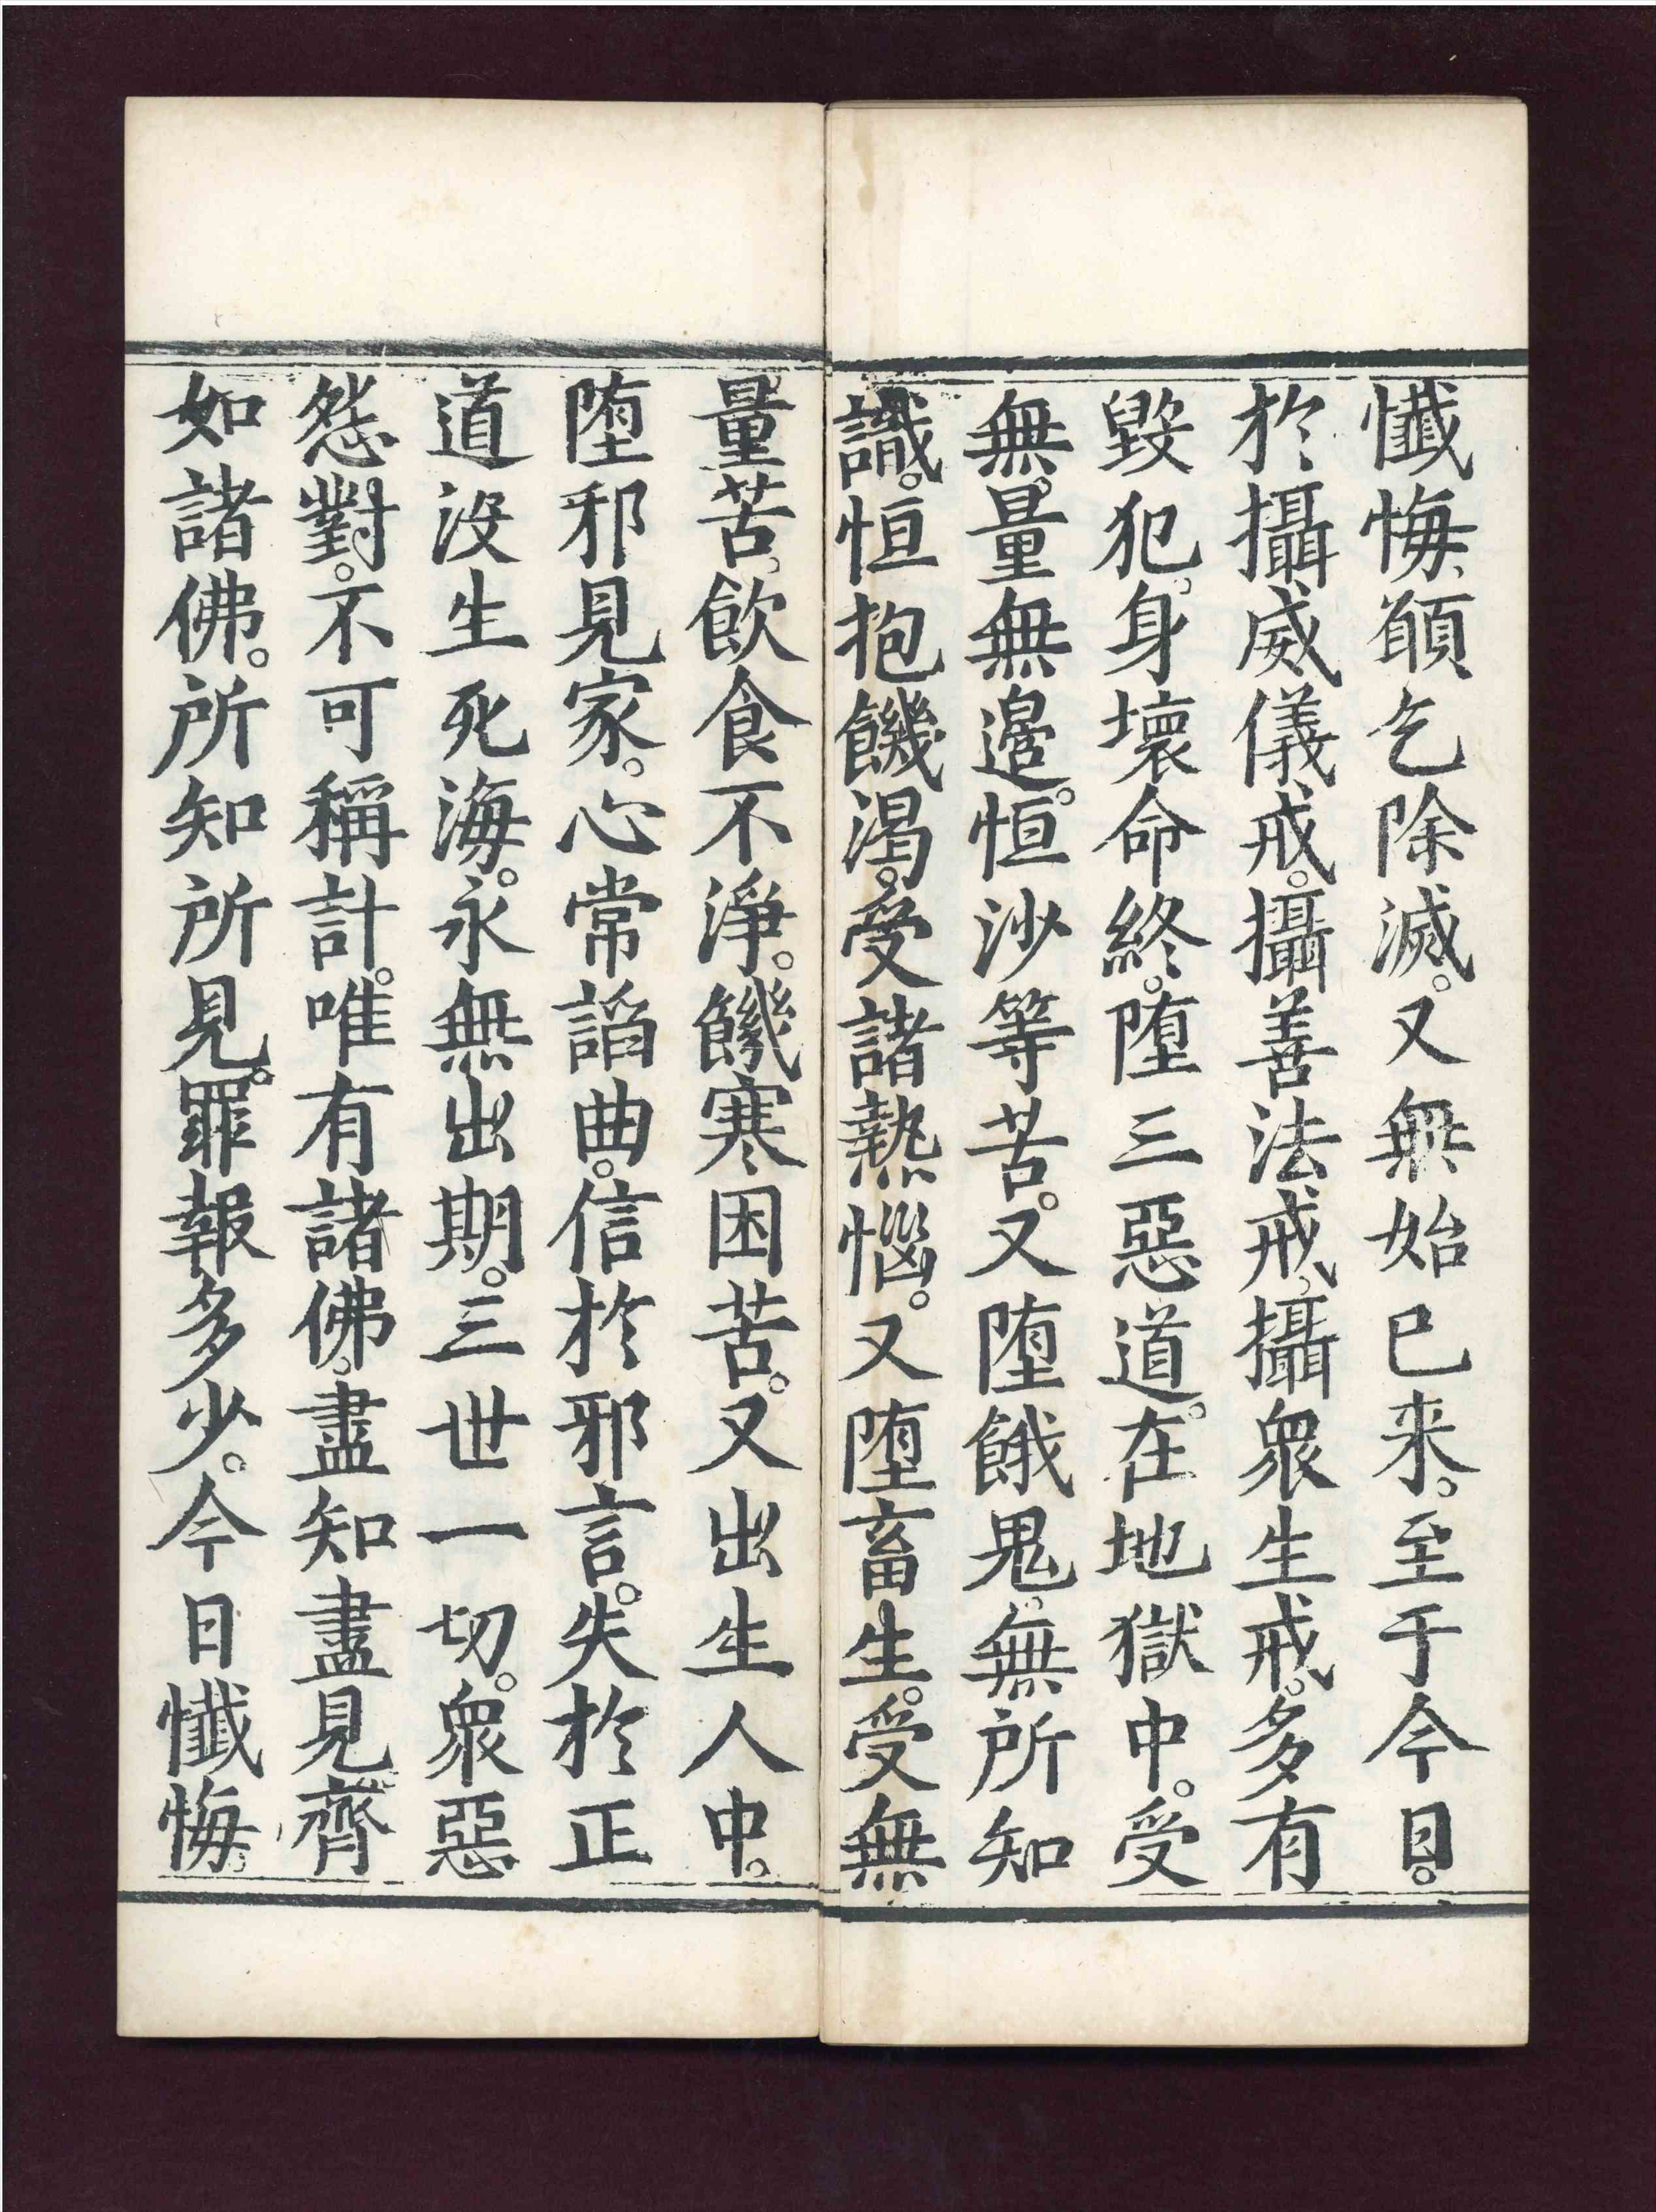 懺悔願乞除滅。又無始已来。至于今日。
於攝威儀戒。攝善法戒。攝衆生戒。多有
毀犯。身壞命終。墮三惡道。在地獄中。受
無量無邊。恒沙等苦。又墮餓鬼。無所知
識。恒抱饑渴。受諸熱惱。又墮畜生。受無
量苦。飲食不淨。饑寒困苦。又出生人中。
墮邪見家。心常諂曲。信於邪言。失於正
道没生死海。永無出期。三世一切。衆惡
怨對。不可稱計。唯有諸佛。盡知盡見齊
如諸佛。所知所見。罪報多少。今日懺悔。